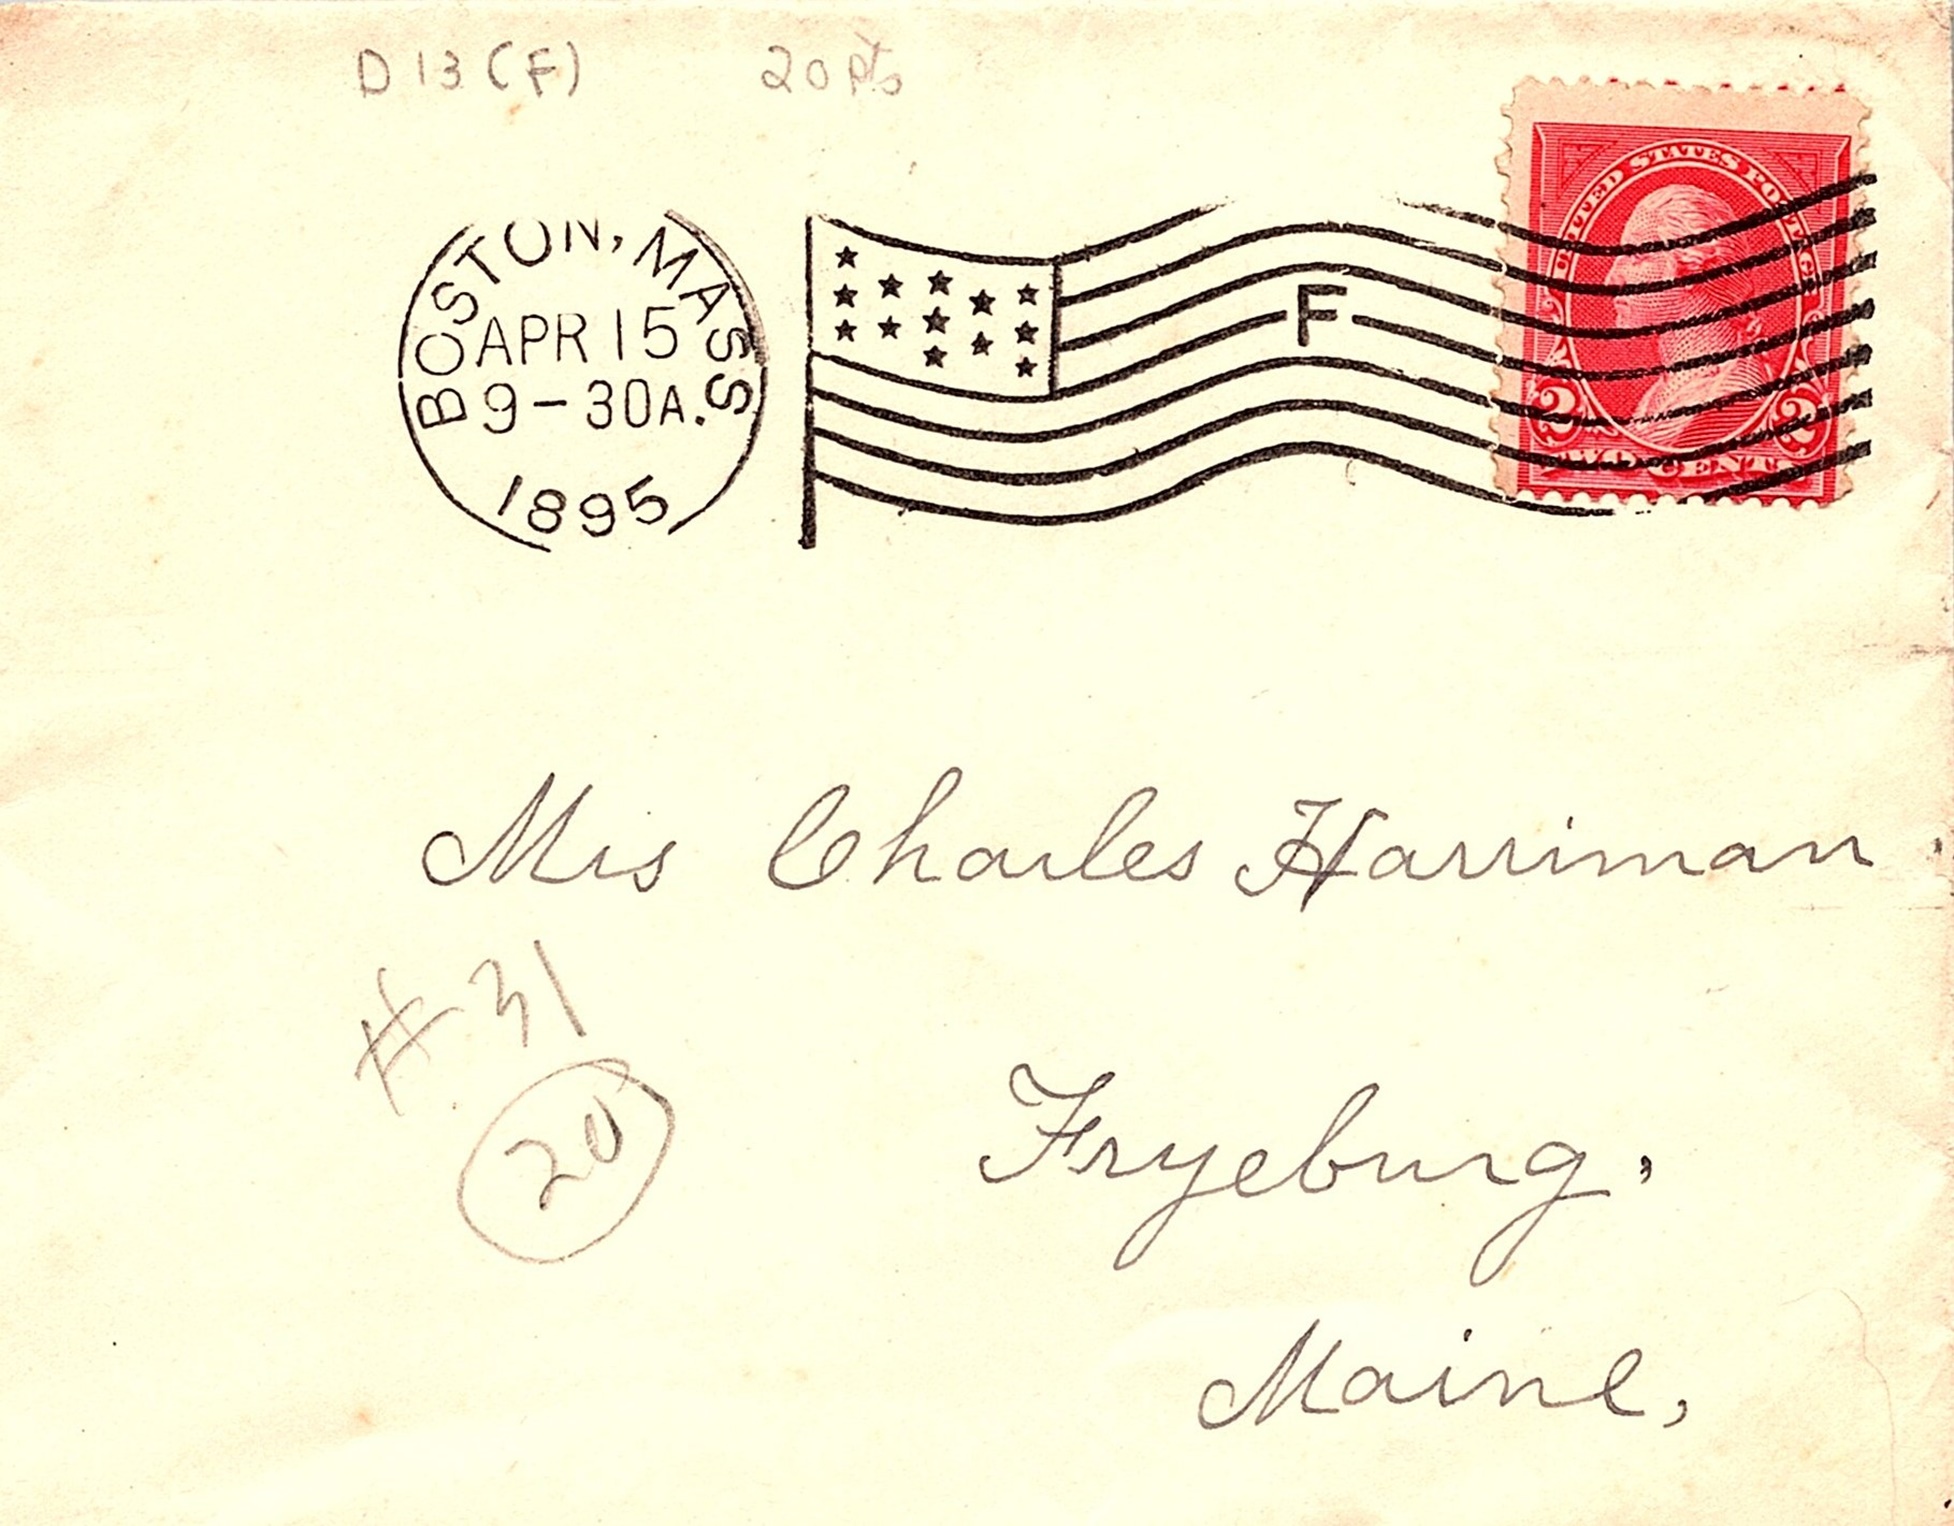 D13(F) 20 Pts
BOSTON, MASS
APR 15
9-30A.
1895
F
UNITED STATES POSTAGE
2 2
TWO CENTS
Mrs Charles Harriman.
#31
20
Fryeburg,
Maine,